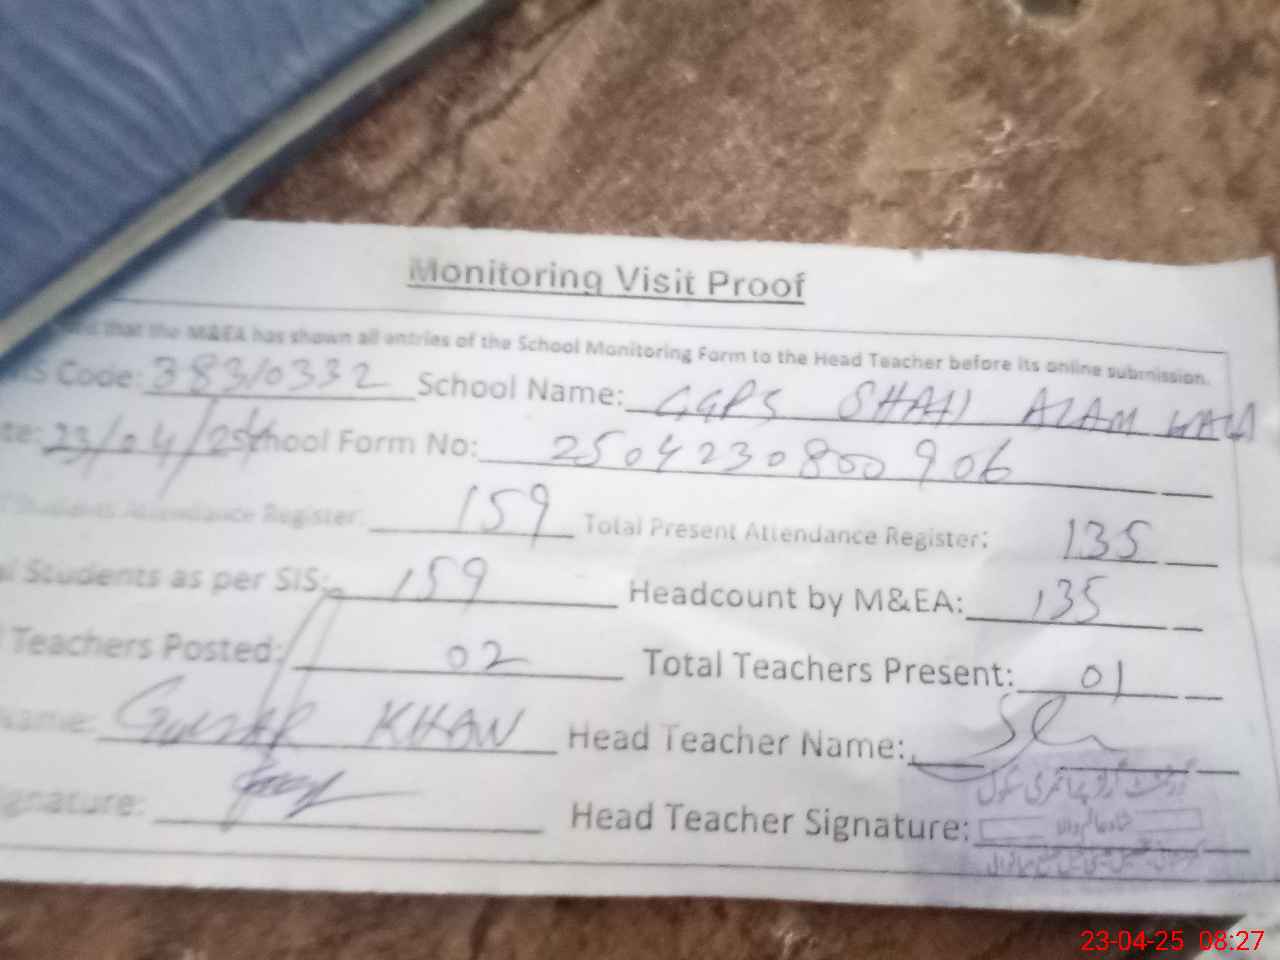 Monitoring Visit Proof
that the M&EA has shown all entries of the School Monitoring Form to the Head Teacher before its online submission.
S Code: 38310332 School Name: GGPS SHAH ALAM WALA
te: 23/04/25 School Form No: 2504230800906
Students Attendance Register: 159 Total Present Attendance Register: 135
al Students as per SIS: 159 Headcount by M&EA: 135
Teachers Posted: 02 Total Teachers Present: 01
Name: KHAN Head Teacher Name:
ignature: Head Teacher Signature:
23-04-25 08:27